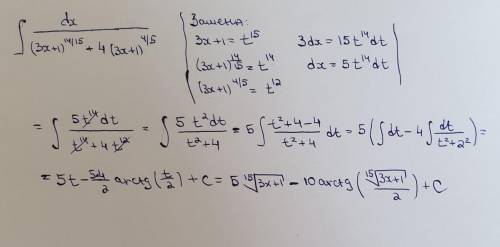 ∫ dx / ((3x+1)^{14/15} + 4(3x+1)^{4/5})
Замена:
3x+1 = t^{15} 3dx = 15t^{14}dt
(3x+1)^{14/15} = t^{14} dx = 5t^{14}dt
(3x+1)^{4/5} = t^{12}
= ∫ 5t^{14}dt / (t^{14} + 4t^{12}) = ∫ 5t^2dt / (t^2+4) = 5 ∫ (t^2+4-4) / (t^2+4) dt = 5 (∫dt - 4∫ dt / (t^2+2^2)) =
= 5t - 5·4/2 arctg(t/2) + C = 5 \sqrt[15]{3x+1} - 10 arctg(\sqrt[15]{3x+1} / 2) + C